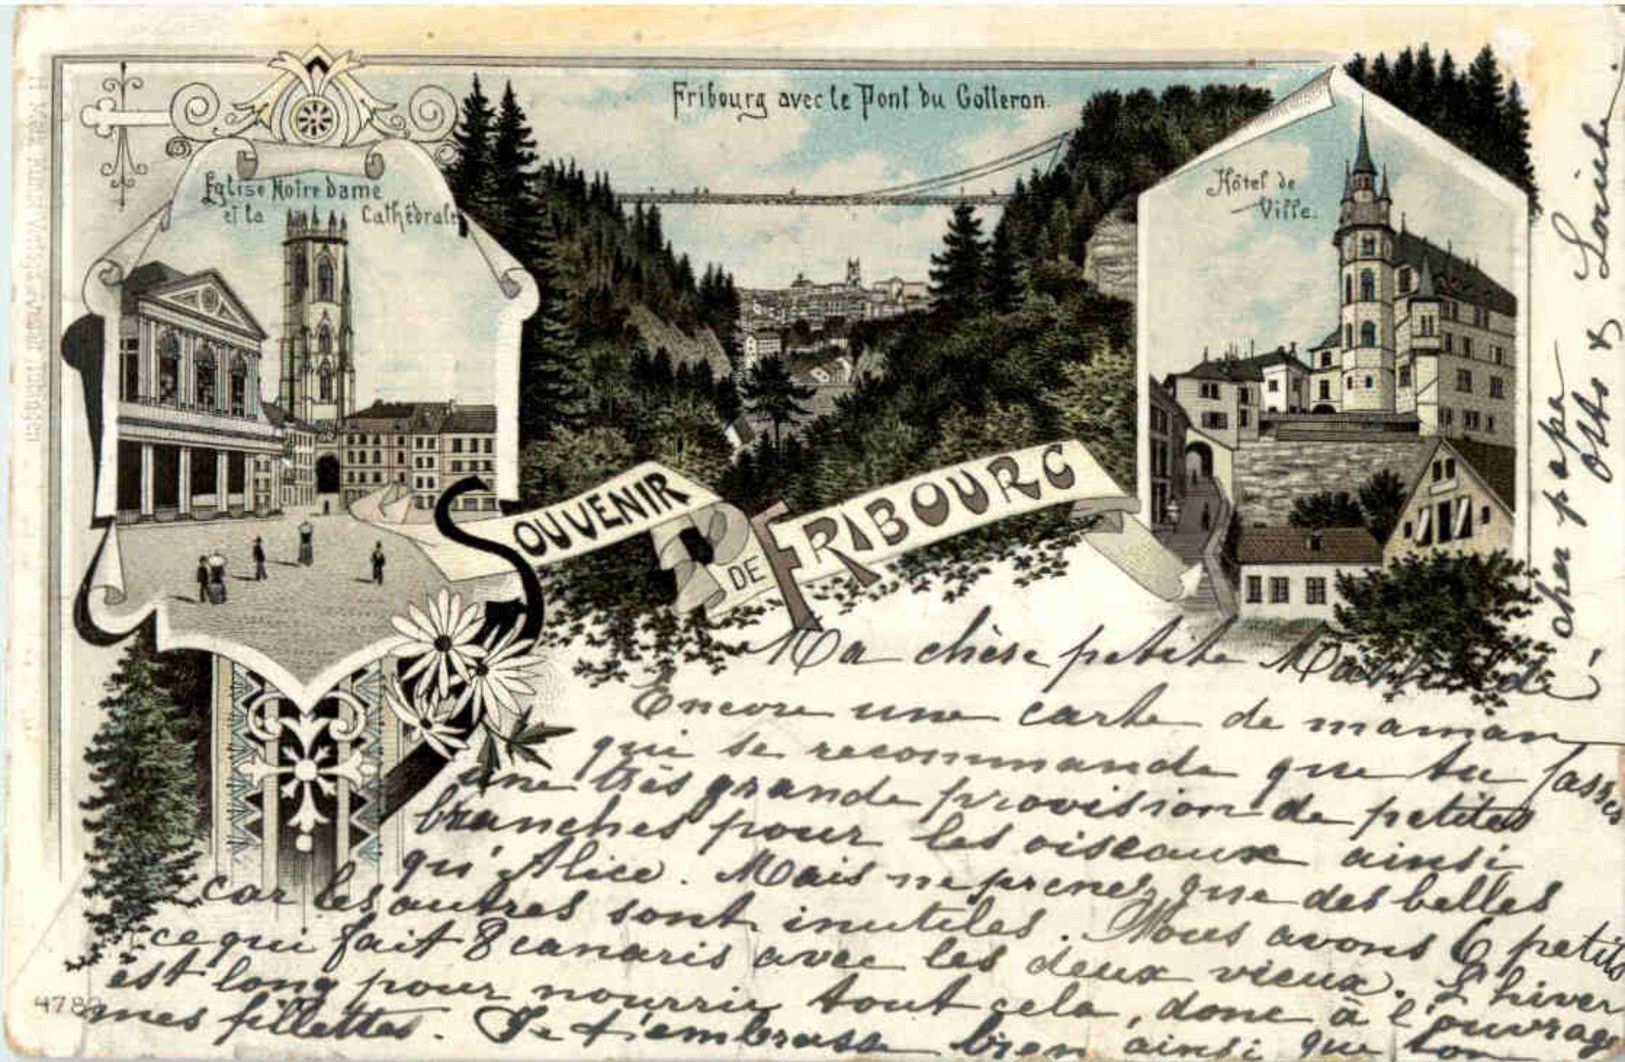 Fribourg avec le Pont du Gotteron.
Eglise Notre dame
et la Cathédrale
Hôtel de
Ville.
SOUVENIR
DE FRIBOURG
Ma chère petite
Encore une carte de maman
qui se recommande que tu fasses
une très grande provision de petites
branches pour les oiseaux ainsi
qu'Alice. Mais ne prenez que des belles
car les autres sont inutiles. Nous avons 6 petits
ce qui fait 8 canaris avec les deux vieux. L'hiver
est long pour nourrir tout cela, donc à l'ouvrage
mes fillettes. Je t'embrasse bien ainsi que to
cher papa
Otto & Louise.
478